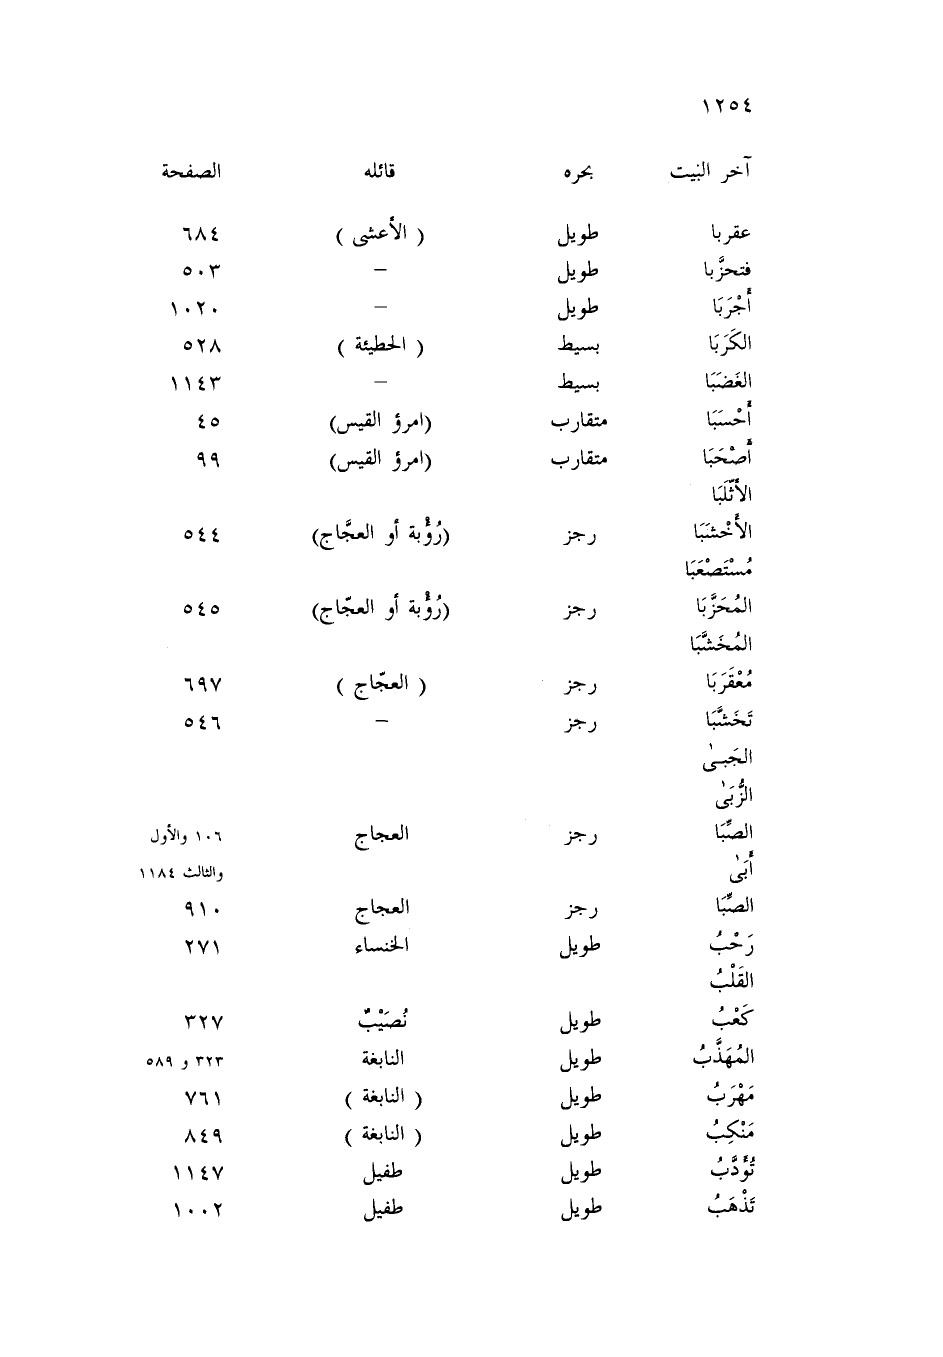 ١٢٥٤
آخر البيت بحره قائله الصفحة
عقربا طويل ( الأعشى ) ٦٨٤
فتحزَّبا طويل – ٥٠٣
أَجْرَبَا طويل – ١٠٢٠
الكَرَبَا بسيط ( الحطيئة ) ٥٢٨
الغَضَبَا بسيط – ١١٤٣
أَحْسَبَا متقارب (امرؤ القيس) ٤٥
أَصْحَبَا متقارب (امرؤ القيس) ٩٩
الأَثْلَبَا
الأَخْشَبَا رجز (رُؤْبة أو العجَّاج) ٥٤٤
مُسْتَصْعَبَا
المُحَزَّبَا رجز (رُؤْبة أو العجّاج) ٥٤٥
المُخَشَّبَا
مُعْقَرَبَا رجز ( العجّاج ) ٦٩٧
تَخَشَّبَا رجز – ٥٤٦
الجَبىٰ
الزُّبَىٰ
الصِّبَا رجز العجاج ١٠٦ والأول
أَبَىٰ والثالث ١١٨٤
الصِّبَا رجز العجاج ٩١٠
رَحْبُ طويل الخنساء ٢٧١
القَلْبُ
كَعْبُ طويل نُصَيْبٌ ٣٢٧
المُهَذَّبُ طويل النابغة ٣٢٣ و ٥٨٩
مَهْرَبُ طويل ( النابغة ) ٧٦١
مَنْكِبُ طويل ( النابغة ) ٨٤٩
تُؤَدَّبُ طويل طفيل ١١٤٧
تَذْهَبُ طويل طفيل ١٠٠٢